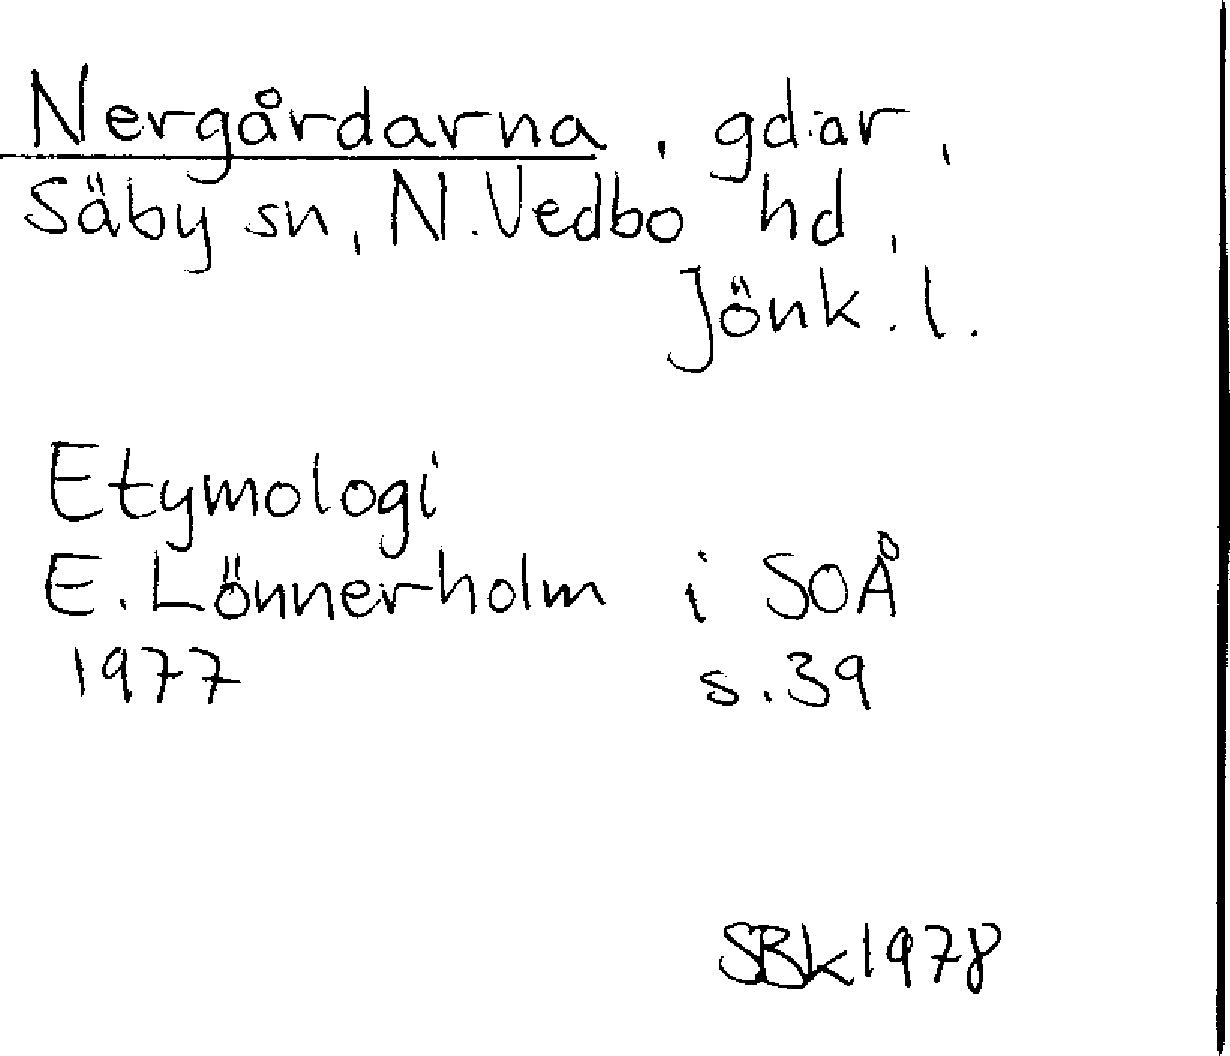 Nergårdarna, gdar,
Säby sn, N. Vedbo hd,
Jönk. l.
Etymologi
E. Lönnerholm i SOÅ
1977 s. 39
SBk 1978